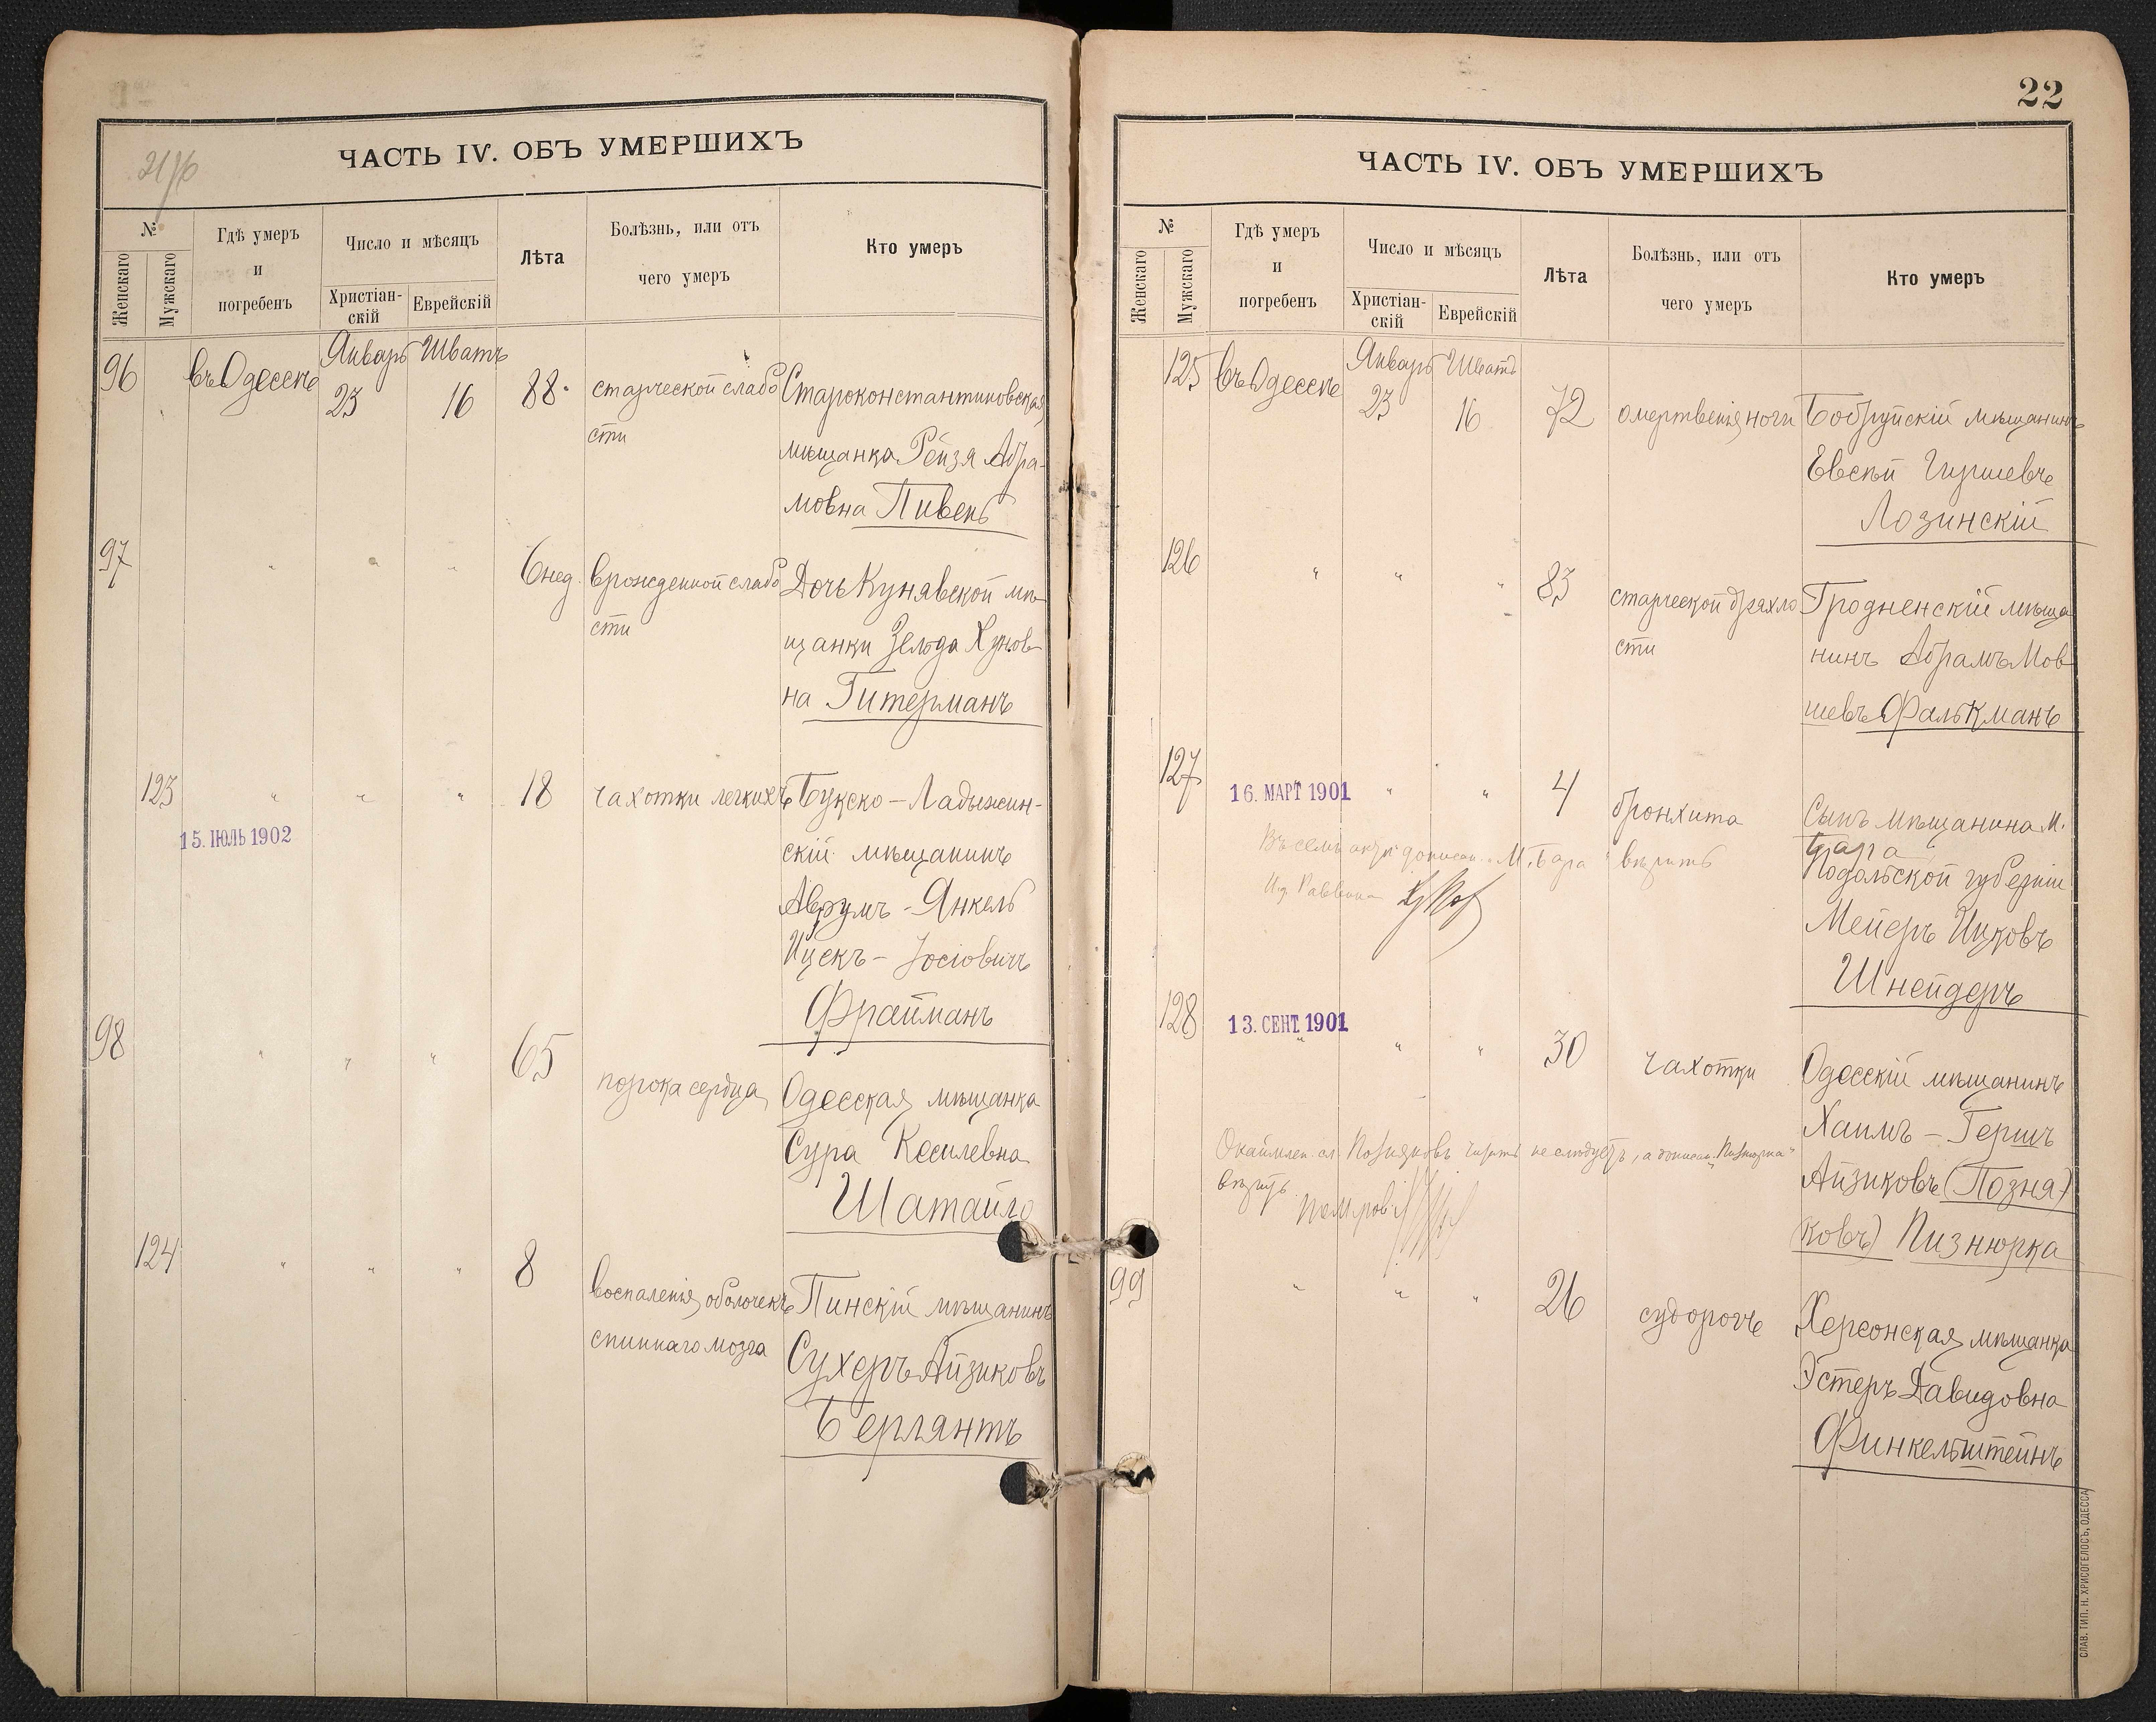 ЧАСТЬ IV. ОБЪ УМЕРШИХЪ
№
Женскаго
Мужскаго
Гдѣ умеръ
и
погребенъ
Число и мѣсяцъ
Христіан-
скій
Еврейскій
Лѣта
Болѣзнь, или отъ
чего умеръ
Кто умеръ
96 въ Одессѣ Январь 23 Шватъ 16 88 старческой слабо Староконстантиновская
сти
мѣщанка Рейзя Абра-
мовна Пивень
97 " " " 6 нед. врожденной слабо Дочь Кунявской мѣ-
сти
щанки Зельда Хунов-
на Гитерманъ
123 " " " 18 чахотки легкихъ Букско-Ладыжин-
15. ІЮЛЬ 1902
скій мѣщанинъ
Аврумъ-Янкель
Ицекъ-Іосіовичъ
Фрайманъ
98 " " " 65 порока сердца Одесская мѣщанка
Сура Кесилевна
Шатайло
124 " " " 8 воспаленія оболочекъ Пинскій мѣщанинъ
спиннаго мозга
Сухеръ Айзиковъ
Берлянтъ
22
ЧАСТЬ IV. ОБЪ УМЕРШИХЪ
№
Женскаго
Мужскаго
Гдѣ умеръ
и
погребенъ
Число и мѣсяцъ
Христіан-
скій
Еврейскій
Лѣта
Болѣзнь, или отъ
чего умеръ
Кто умеръ
125 въ Одессѣ Январь 23 Шватъ 16 72 омертвенія ноги Бобруйскій мѣщанинъ
Евсѣй Гиршевъ
Лозинскій
126 " " " 83 старческой дряхло Гродненскій мѣща
сти
нинъ Абрамъ Мов
шевъ Фалькманъ
127 16. МАРТ 1901 " " 4 бронхита Сынъ мѣщанина м.
Бара
Подольской губерніи
Мейеръ Ицковъ
Шнейдеръ
Въ семъ актѣ дописан. "М. Бара" вѣрить
И.д. Раввина
128 13. СЕНТ. 1901 " " " 30 чахотки Одесскій мѣщанинъ
Хаимъ-Гершъ
Айзиковъ (Позня)
(ковъ) Пизнюрка
Окаймлен. сл. Позняковъ читать не слѣдуетъ, а дописан. "Пизнюрка"
вѣрить
99 " " " 26 судорогъ Херсонская мѣщанка
Эстеръ Давидовна
Финкельштейнъ
СЛАВ. ТИП. Н. ХРИСОГЕЛОСЪ, ОДЕССА